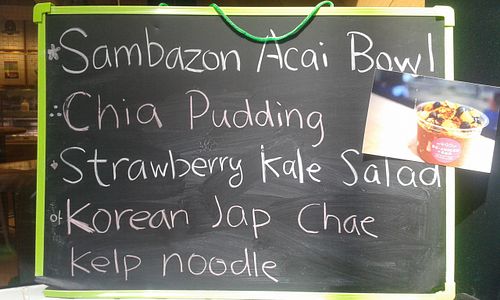 Sambazon Acai Bowl
Chia Pudding
Strawberry Kale Salad
아 Korean Jap Chae
kelp noodle